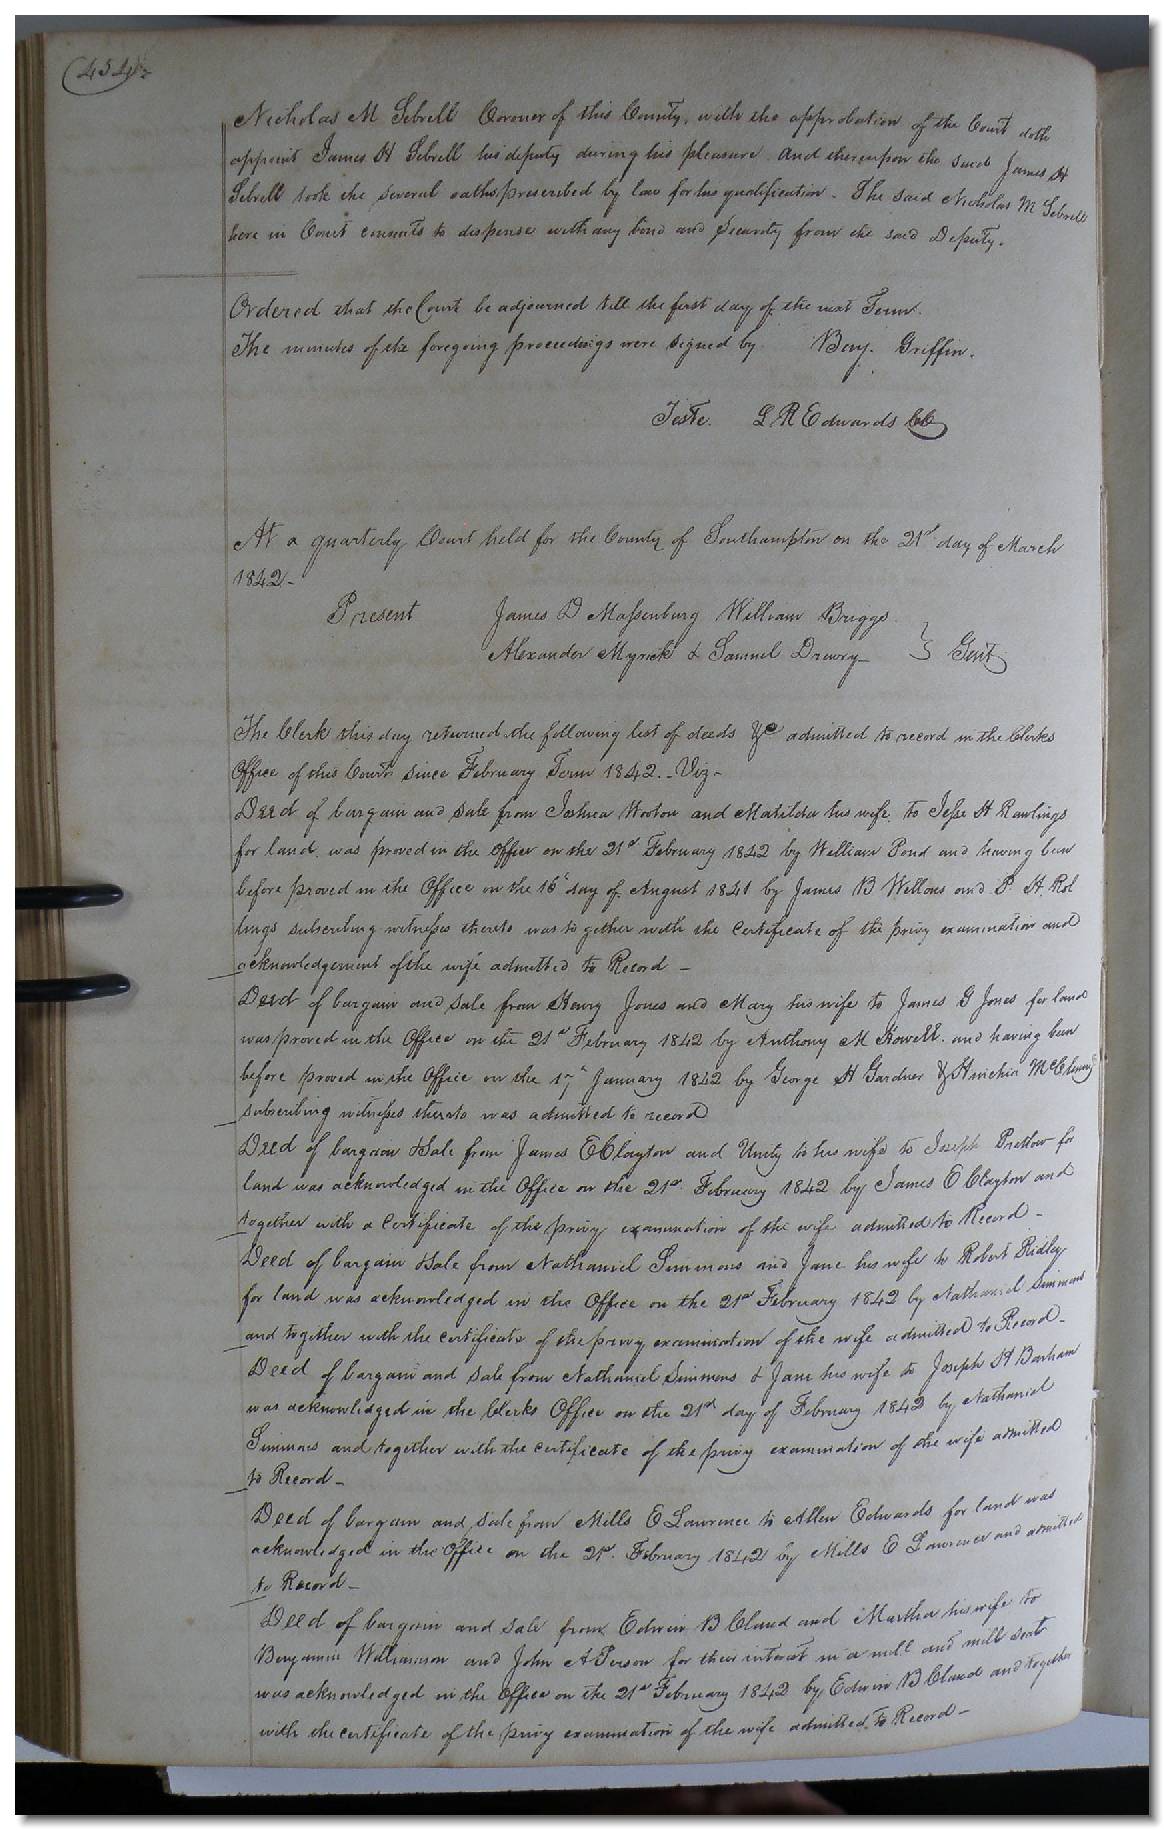 (454)
Nicholas M Sebrell Coroner of this County, with the approbation of the Court doth
appoint James H Sebrell his deputy during his pleasure And thereupon the said James H
Sebrell took the several oaths prescribed by law for his qualification - The said Nicholas M Sebrell
here in Court consents to dispense with any bond and Security from the said Deputy.
Ordered that the Court be adjourned till the first day of the next Term.
The minutes of the foregoing proceedings were signed by Benj. Griffin.
Teste. L R Edwards CC
At a quarterly Court held for the County of Southampton on the 21st day of March
1842-
Present James D Massenburg William Briggs
Alexander Myrick & Samuel Drewry } Gent
The Clerk this day returned the following list of deeds &c admitted to record in the Clerks
Office of this Court since February Term 1842. - Viz -
Deed of bargain and sale from Joshua Worton and Matilda his wife to Jesse H Rawlings
for land was proved in the Office on the 21st February 1842 by William Pond and having been
before proved in the Office on the 16th day of August 1841 by James B Wellons and P. H. Rol
lings subscribing witnesses thereto was together with the certificate of the privy examination and
acknowledgement of the wife admitted to Record -
Deed of bargain and sale from Henry Jones and Mary his wife to James G Jones for land
was proved in the Office on the 21st February 1842 by Anthony M Howell. and having been
before proved in the Office on the 17th January 1842 by George H Gardner &
subscribing witnesses thereto was admitted to record
Deed of bargain & Sale from James E Clayton and Unity to his wife to Joseph Pretlow for
land was acknowledged in the Office on the 21st. February 1842 by James E Clayton and
together with a certificate of the privy examination of the wife admitted to Record -
Deed of bargain & Sale from Nathaniel Simmons and Jane his wife to Robert Ridley
for land was acknowledged in the Office on the 21st February 1842 by Nathaniel Simmons
and together with the certificate of the privy examination of the wife admitted to Record -
Deed of bargain and sale from Nathaniel Simmons & Jane his wife to Joseph H Barham
was acknowledged in the Clerks Office on the 21st day of February 1842 by Nathaniel
Simmons and together with the certificate of the privy examination of the wife admitted
to Record -
Deed of bargain and sale from Mills E Lawrence to Allen Edwards for land was
acknowledged in the Office on the 21st. February 1842 by Mills E Lawrence and admitted
to Record -
Deed of bargain and sale from Edwin B Claud and Martha his wife to
Benjamin Williamson and John A Person for their interest in a mill and mill seat
was acknowledged in the Office on the 21st February 1842 by Edwin B Claud and together
with the certificate of the privy examination of the wife admitted to Record -